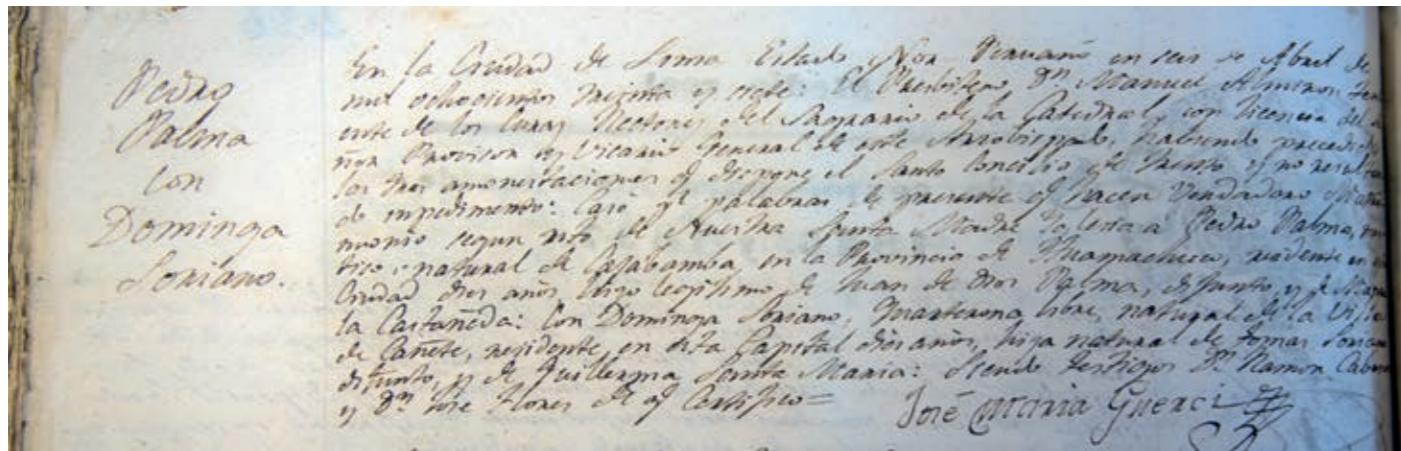 Pedro
Palma
con
Dominga
Soriano.
En la Ciudad de Lima Estado Nor Peruano en seis de Abril de
mil ochocientos treinta y siete: El Presbitero Dn Manuel Almiron ten
ente de los Curas Rectores del Sagrario de la Catedral, con licencia del
ñor Provisor y Vicario General de este Arzobispado, habiendo precedido
las tres amonestaciones q dispone el Santo Concilio de Trento y no resulta
do impedimento: Casó pr palabras de presente q hacen verdadero Matri
monio segun rito de Nuestra Santa Madre Yglesia a Pedro Palma,
tiso, natural de Cajabamba, en la Provincia de Huamachuco, recidente en
Ciudad dies años, hijo legitimo de Juan de Dios Palma, difunto, y de
la Castañeda: Con Dominga Soriano, Quarterona libre, natural de la Villa
de Cañete, residente en esta Capital dies años, hija natural de Tomas Soriano
difunto, y de Guillerma Santa Maria: Siendo testigos Dn Ramon
y Dn José Flores de q Certifico=
José Maria Guerci